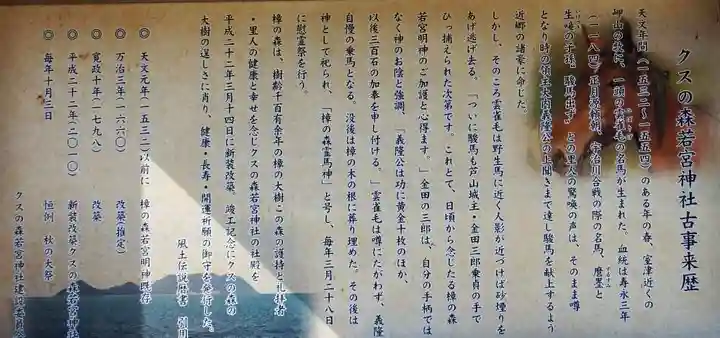 クスの森若宮神社古事来歴
天文年間(一五三二〜一五五四)のある年の春、室津近くの
岬山の牧に、一頭の雲雀毛の名馬が生まれた。血統は寿永三年
(一一八四)正月源頼朝、宇治川合戦の際の名馬、磨墨と
生唼の子孫。「駿馬出ず」との里人の驚喚の声は、そのまま噂
となり時の領主大内義隆公の上聞きまで達し駿馬を献上するよう
近郷の諸豪に命じた。
しかし、そのころ雲雀毛は野生馬に近く人影が近づけば砂煙りを
あげ逃げ去る。「ついに駿馬も芦山城主・金田三郎乗貞の手で
ひっ捕えられた次第です。これとて、日頃から念じたる樟の森
若宮明神のご加護と心得ます。」金田の三郎は、自分の手柄では
なく神のお陰と強調、「義隆公は功に黄金十枚のほか、
以後三百石の加奉を申し付ける。」雲雀毛は噂にたがわず、義隆
自慢の乗馬となる。没後は樟の木の根に葬り埋めた。その後は
神として祀られ、「樟の森霊馬神」と号し、毎年三月二十八日
に慰霊祭を行う。
樟の森は、樹齢千百有余年の樟の大樹この森の護持と礼拝者
・里人の健康と幸せを念じクスの森若宮神社の社殿を
平成二十二年三月十四日に新装改築。竣工記念にクスの森の
大樹の逞しさに肖り、健康・長寿・開運祈願の御守を発行した。
風土伝説 書 引用
◎ 天文元年(一五三二)以前に 樟の森若宮明神既存
◎ 万治三年(一六六〇) 改築(推定)
◎ 寛政十年(一七九八) 改築
◎ 平成二十二年(二〇一〇) 新装改築クスの森若宮神社
◎ 毎年十月三日 恒例 秋の大祭
クスの森若宮神社建設委員会